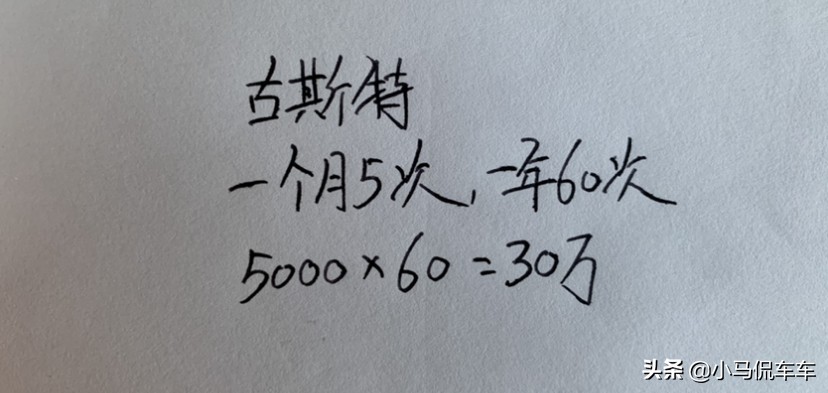 古斯特
一个月5次,一年60次
5000×60=30万
头条 @小马侃车车